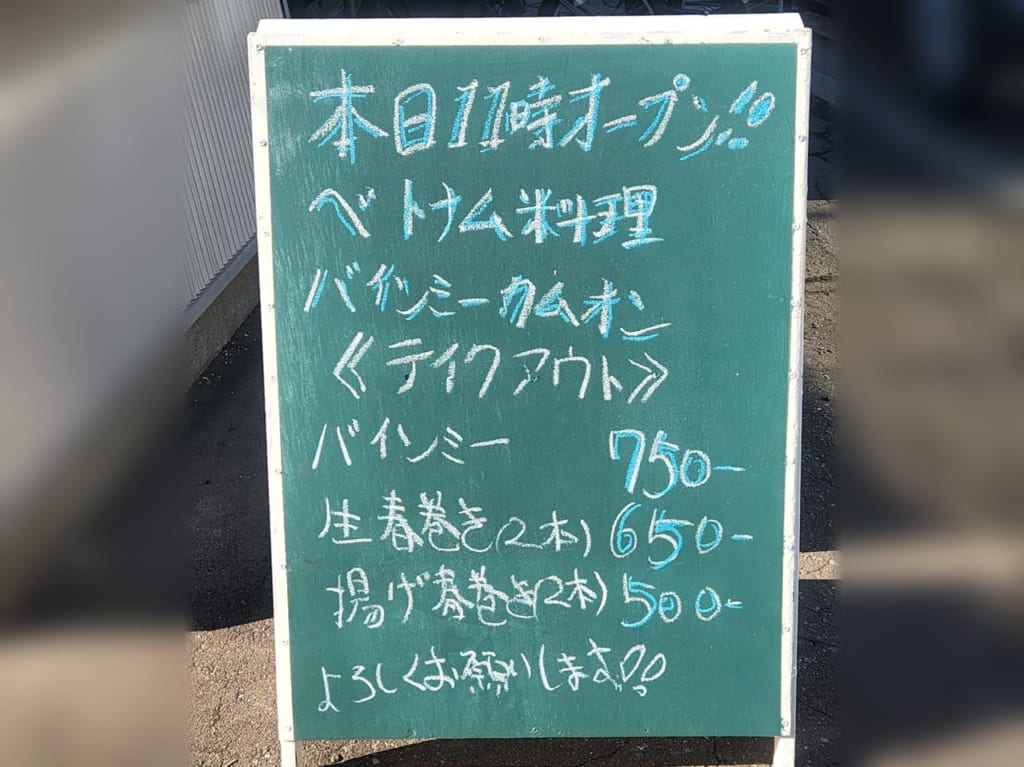 本日11時オープン!!
ベトナム料理
バインミーカムオン
《テイクアウト》
バインミー 750-
生春巻き(2本) 650-
揚げ春巻き(2本) 500-
よろしくお願いします!!